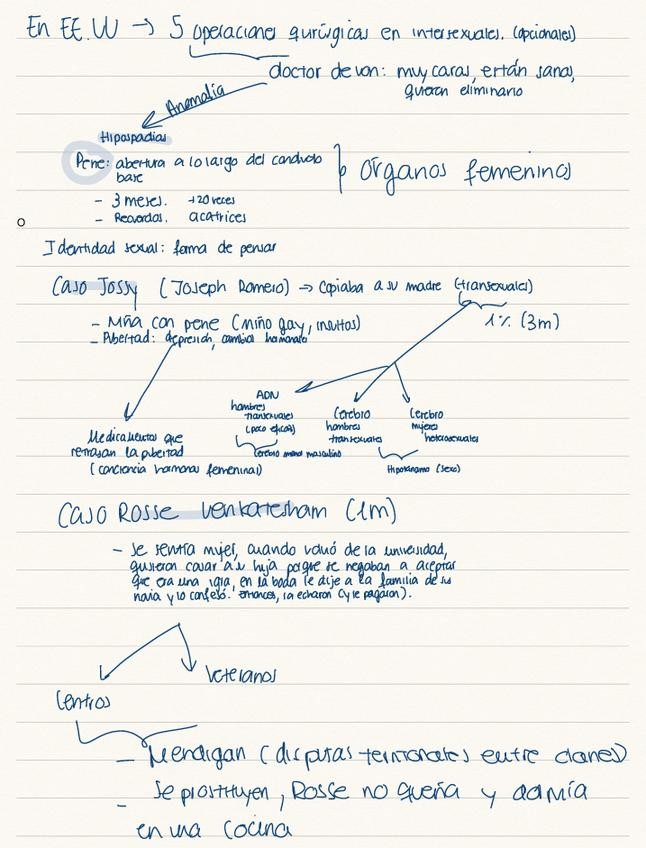 En EE.UU → 5 operaciones quirúrgicas en intersexuales. (opcionales)
doctor devon: muy caras, están sanas,
quieren eliminarlo
Anomalía
Hipospadias
Pene: abertura a lo largo del conducto
base
- 3 meses. +20 veces
- Recuerdas. cicatrices
órganos femeninos
Identidad sexual: forma de pensar
Caso Jossy (Joseph Romero) → copiaba a su madre (transexuales)
1% (3m)
- Niña con pene (niño gay, insultos)
- Pubertad: depresión, cambia hormonato
ADN
hombres
transexuales
(poco eficaz)
Cerebro
hombres
transexuales
Cerebro
mujeres
heterosexuales
Cerebro menos masculino
Hipotálamo (sexo)
Medicamentos que
retrasan la pubertad
(conciencia hormonas femeninas)
Caso Rosse Venkatesham (1m)
- Se sentía mujer, cuando volvió de la universidad,
quisieron casar a su hija porque se negaban a aceptar
que era una, en la boda le dije a la familia de su
novia y lo confesó. entonces, la echaron (y le pagaron).
Centros
Veteranos
- Mendigan (disputas territoriales entre clanes)
- Se prostituyen, Rosse no quería y dormía
en una cocina